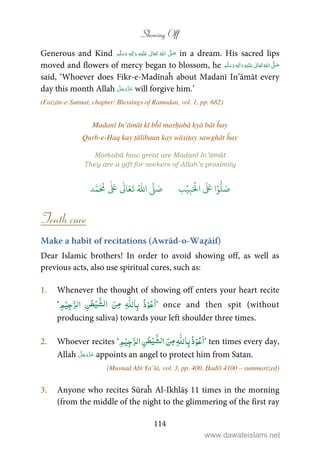 Showing Off
Generous and Kind صَلَّى اللهُ تَعَالٰى عَلَيْهِ وَاٰلِهٖ وَسَلَّم in a dream. His sacred lips
moved and flowers of mercy began to blossom, he صَلَّى اللهُ تَعَالٰى عَلَيْهِ وَاٰلِهٖ وَسَلَّم
said, ‘Whoever does Fikr-e-Madīnaĥ about Madanī In’āmāt every
day this month Allah عَزَّوَجَلَّ will forgive him.’
(Faizān-e-Sunnat, chapter: Blessings of Ramadan, vol. 1, pp. 682)
Madanī In’āmāt kī bĥī marḥabā kyā bāt ĥay
Qurb-e-Ḥaq kay ṭālibaun kay wāsiṭay sawghāt ĥay
Marḥabā how great are Madanī In’āmāt
They are a gift for seekers of Allah’s proximity
صَلُّوْا عَلَى الْحَبِيْب صَلَّى اللهُ تَعَالٰى عَلٰى مُحَمَّد
Tenth cure
Make a habit of recitations (Awrād-o-Waẓāif)
Dear Islamic brothers! In order to avoid showing off, as well as
previous acts, also use spiritual cures, such as:
1. Whenever the thought of showing off enters your heart recite
‘اَعُوْذُ بِاللهِ مِنَ الشَّيْطٰنِ الرَّجِيْمِ’ once and then spit (without
producing saliva) towards your left shoulder three times.
2. Whoever recites ‘اَعُوْذُ بِاللهِ مِنَ الشَّيْطٰنِ الرَّجِيْمِ’ ten times every day,
Allah عَزَّوَجَلَّ appoints an angel to protect him from Satan.
(Musnad Abī Ya’lā, vol. 3, pp. 400, Ḥadīš 4100 – summarized)
3. Anyone who recites Sūraĥ Al-Ikhlāṣ 11 times in the morning
(from the middle of the night to the glimmering of the first ray
114
www.dawateislami.net